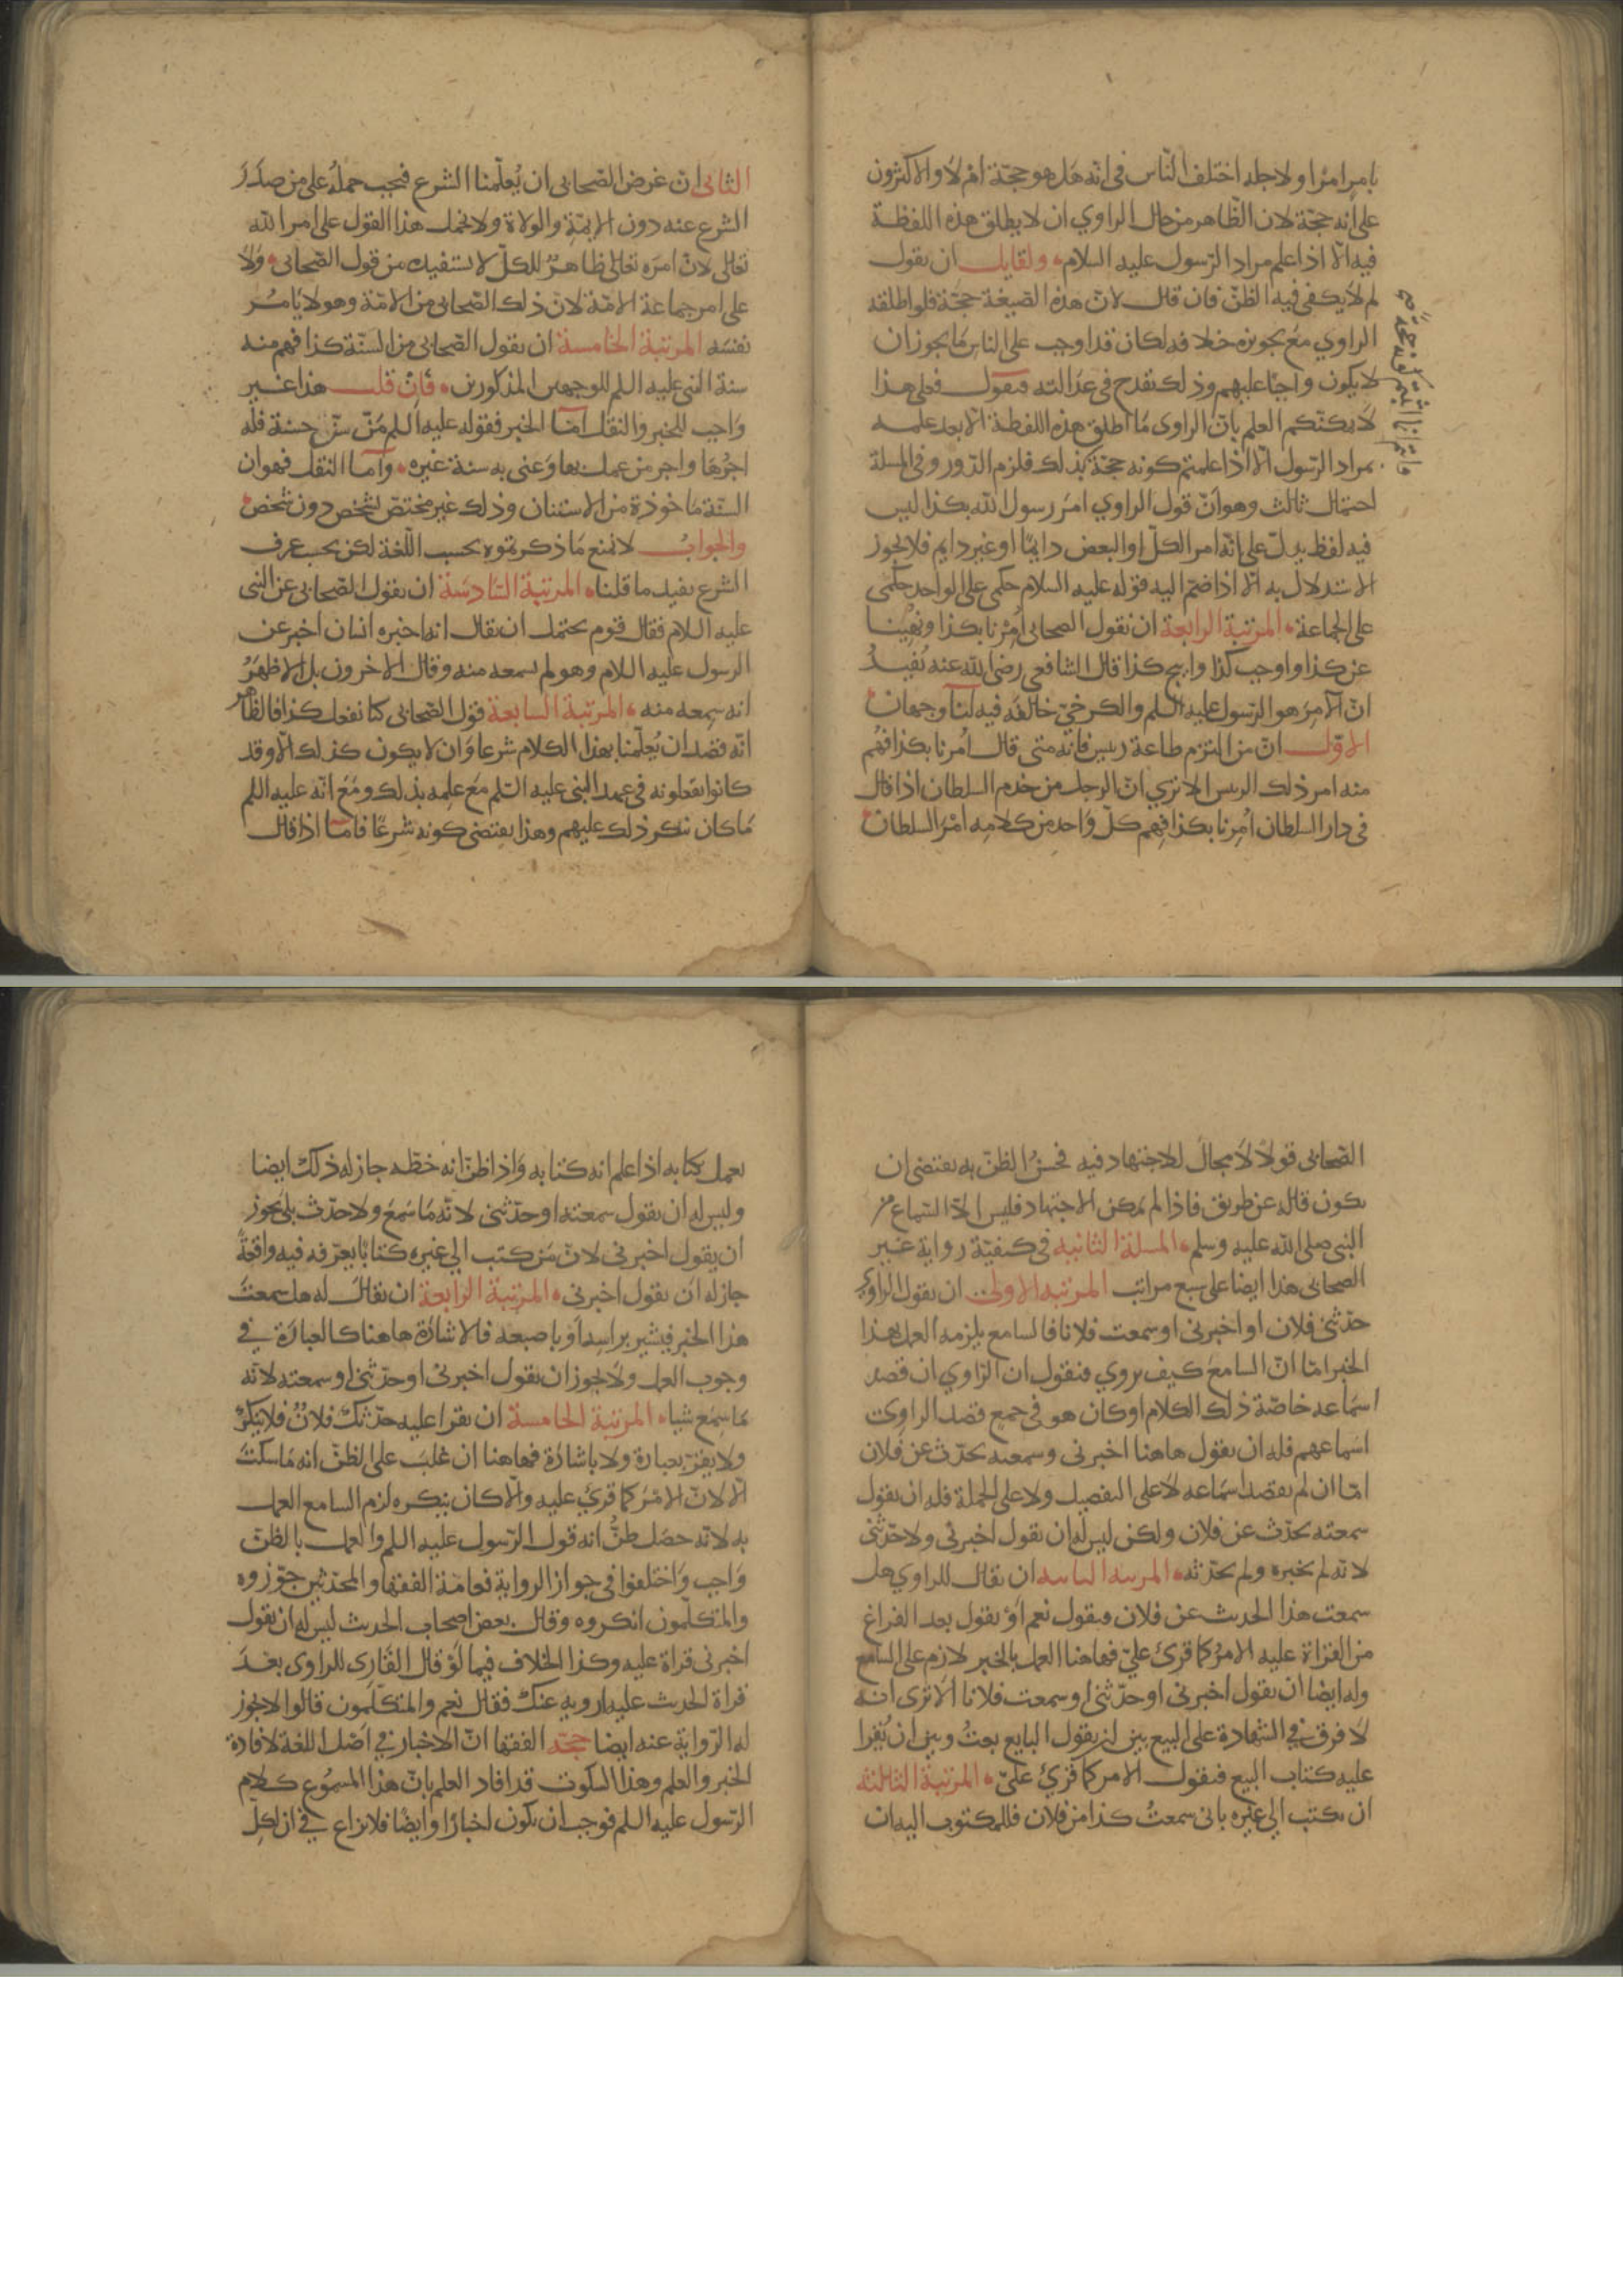 بامر امرا ولاجله اختلف الناس فى انه هل هو حجة ام لا والاكثرون
على انه حجة لان الظاهر من حال الراوي ان لا يطلق هذه اللفظة
فيه الا اذا علم مراد الرسول عليه السلام ولقايل ان يقول
لم لا يكفى فيه الظن فان قال لان هذه الصيغة حجة فلو اطلقه
الراوي مع تجويزه خلافه لكان قد اوجب على الناس ما يجوز ان
لا يكون واجبا عليهم وذلك تقدح فى عدالته فنقول فعلى هذا
لا يمكنكم العلم بان الراوى ما اطلق هذه اللفظة الا بعد علمه
بمراد الرسول الا اذا علمتم كونه حجة بذلك فلزم الدور وفى المسلة
احتمال ثالث وهو ان قول الراوي امر رسول الله بكذا ليس
فيه لفظ يدل على انه امر الكل او البعض دايما او غير دايم فلا يجوز
الاستدلال به الا اذا ضم اليه قوله عليه السلام حكمى على الواحد حكمى
على الجماعة المرتبة الرابعة ان يقول الصحابى اُمِرْنا بكذا ونُهِينا
عن كذا واوجب كذا وابيح كذا قال الشافعى رضى الله عنه يُفيدُ
ان الآمِرَ هو الرسول عليه السلم والكرخىّ خالفه فيه لنا وجهان
الاوّل انّ من التزم طاعة رييس فانه متى قال اُمرنا بكذا فُهم
منه امر ذلك الرييس الا تري انّ الرجل من خدم السلطان اذا قال
فى دار السلطان اُمِرنا بكذا فهم كلّ واحد من كلامه امْرَ السلطان
الثانى ان غرض الصحابى ان يُعلّمنا الشرع فيجب حملهُ على من صدَرَ
الشرع عنه دون الايمّة والولاة ولا نحمل هذا القول على امر الله
تعالى لانّ امره تعالى ظاهر للكلّ لا يستفيده من قول الصحابى ولا
على امر جماعة الامة لانّ ذلك الصحابى من الامة وهو لا يامُر
نفسَه المرتبة الخامسة ان يقول الصحابى من السنّة كذا فُهم منه
سنة النبى عليه السلم للوجهين المذكورين فان قلت هذا غير
واجب للخبر والنقل اما الخبر فقوله عليه السلم مَن سنّ حسنة فله
اجرُها واجر من عمل بها وعنى به سنة غيره واما النقل فهو ان
السنّة ماخوذة من الاستنان وذلك غير مختص لشخص دون شخص
والجوابُ لا نمنع ما ذكرتموه بحسب اللّغة لكن بحسب عرف
الشرع يفيد ما قلناه المرتبة السادسة ان يقول الصحابى عن النبى
عليه السلام فقال قوم يحتمل ان يقال انه اخبره انسان اخر عن
الرسول عليه السلام وهو لم يسمعه منه وقال الاخرون بل الاظهَرُ
انه سمعه منه المرتبة السابعة قول الصحابى كنا نفعل كذا فالظاهر
انّه قصد ان يُعلّمنا بهذا الكلام شرعا وان لا يكون كذلك الا وقد
كانوا يفعلونه فى عهد النبى عليه السّلم مع علمه بذلك ومَعَ انّه عليه السلم
ما كان ينكر ذلك عليهم وهذا يقتضى كونه شرعًا فاما اذا قال
الصحابى قولًا لا مجالَ للاجتهاد فيه فحسنُ الظنّ به يقتضى ان
يكون قاله عن طريق فاذا لم يمكن الاجتهاد فليس الا السماع من
النبى صلى الله عليه وسلم المسلة الثانية فى كيفيّة رواية غير
الصحابى هذا ايضا على سبع مراتب المرتبة الاولى ان يقول الراوي
حدّثنى فلان او اخبرنى او سمعت فلانا فالسامع يلزمه العمل بهذا
الخبر امّا انّ السامعَ كيف يروي فنقول ان الراوي ان قصد
اسماعه خاصّة ذلك الكلام او كان هو فى جمع قصد الراوى
اسماعهم فله ان يقول هاهنا اخبرنى وسمعته يحدّث عن فلان
امّا ان لم يقصد اسماعه لا على التفصيل ولا على الجملة فله ان يقول
سمعته يحدّث عن فلان ولكن ليس له ان يقول اخبرنى ولا حدّثنى
لانه لم يخبره ولم يحدّثه المرتبة الثانية ان يقال للراوي هل
سمعت هذا الحديث عن فلان فيقول نعم اوْ يقول بعد الفراغ
من القراة عليه الامرُ كما قرئ علىّ فهاهنا العمل بالخبر لازم على السامع
وله ايضا ان يقول اخبرنى او حدّثنى او سمعت فلانا الا تري انه
لا فرق في الشهادة على البيع بين ان يقول البايع بعتُ وبين ان يُقرا
عليه كتاب البيع فيقول الامر كما قرئ علىّ المرتبة الثالثة
ان يكتب الي غيره بانى سمعتُ كذا من فلان فللمكتوب اليه ان
يعمل بكتابه اذا علم انه كتابه واذا ظنّ انه خطّه جاز له ذلك ايضا
وليس له ان يقول سمعته او حدّثنى لانّه ما سَمعَ ولا حدّث بلى يجوز
ان يقول اخبرنى لانّ مَن كتب الي غيره كتابًا يعرّفه فيه واقعة
جاز له ان يقول اخبرنى المرتبة الرابعة ان يقالَ له هل سمعتَ
هذا الخبر فيشير براسه او باصبعه فالاشارة هاهنا كالعبارة في
وجوب العمل ولا يجوز ان يقول اخبرنى او حدّثنى او سمعته لانّه
ما سمع شيا المرتبة الخامسة ان يقرا عليه حدّثك فلانٌ فلا ينكرُ
ولا يقرّ بعبارة ولا باشارة فهاهنا ان غلبَ على الظنّ انه ما سكتَ
الّا لانّ الامْرَ كما قرئ عليه والّا كان ينكره لزم السامع العمل
به لانّه حصَل ظنُّ انه قول الرّسول عليه السلم والعمل بالظنّ
واجب واختلفوا فى جواز الرواية فعامّة الفقها والمحدّثين جوّزوه
والمتكلّمون انكروه وقال بعض اصحاب الحديث ليس له ان يقول
اخبرنى قراة عليه وكذا الخلاف فيما لوْ قال القارى للراوى بعدَ
قراة الحديث عليه ارويه عنك فقال نعم والمتكلّمون قالوا لا يجوز
له الرّواية عنه ايضا حجة الفقها انّ الاخبار في اصل اللغة لافادة
الخبر والعلم وهذا السكوت قد افاد العلم بانّ هذا المسمُوع كلام
الرّسول عليه السلم فوجب ان يكون اخبارًا وايضًا فلا نزاع في ان لكلّ